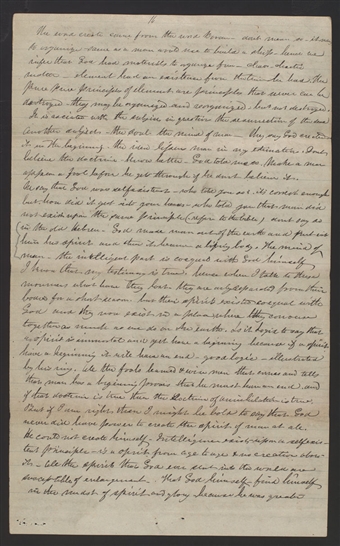 16
The word create came from the word – dont mean so – it means
to organize same as a man would use to build a ship – hence we
infer that God had materials to organize from – chaos – chaotic
matter – element had an existence from the time he had. The
pure pure principles of element, are principles that never can be
destroyed – they may be organized and reorganized – but not destroyed.
It is associated with the subject in question the resurrection of the dead
another subject – the soul – the mind of man – they say God created
it in the beginning. The idea lessens man in my estimation. Dont
believe the doctrine – know better – God told me so – Make a man
appear a fool before he gets through if he dont believe it.
We say that God was self existent – who told you so? it's correct enough
but how did it get into your heads – who told you that man did
not exist upon the same principle (refer to the bible) dont say so
in the old Hebrew – God made man out of the earth and put into
him his spirit and then it became a living body. The mind of
man – the intelligent part is coequal with God himself
I know that my testimony is true, hence when I talk to these
mourners what have they lost they are only separated from their
bodies for a short season – but their spirit existed coequal with
God and they now exist in a place where they converse
together as much as we do on the earth. Is it logic to say that
a spirit is immortal and yet have a beginning because if a spirit
have a beginning it will have an end – good logic – illustrated
by his ring. All the fools learned & wise men that comes and tells
that man has a beginning proves that he must have an end and
if that doctrine is true then the doctrine of annihilation is true.
But if I am right then I might be bold to say that God
never did have power to create the spirit of man at all.
He could not create himself – Intelligence exists upon a self exis-
tent principle – is a spirit from age to age & no creation about
it – All the spirits that God ever sent into the world are
susceptible of enlargement. That God himself – find himself
in the midst of spirit and glory because he was greater